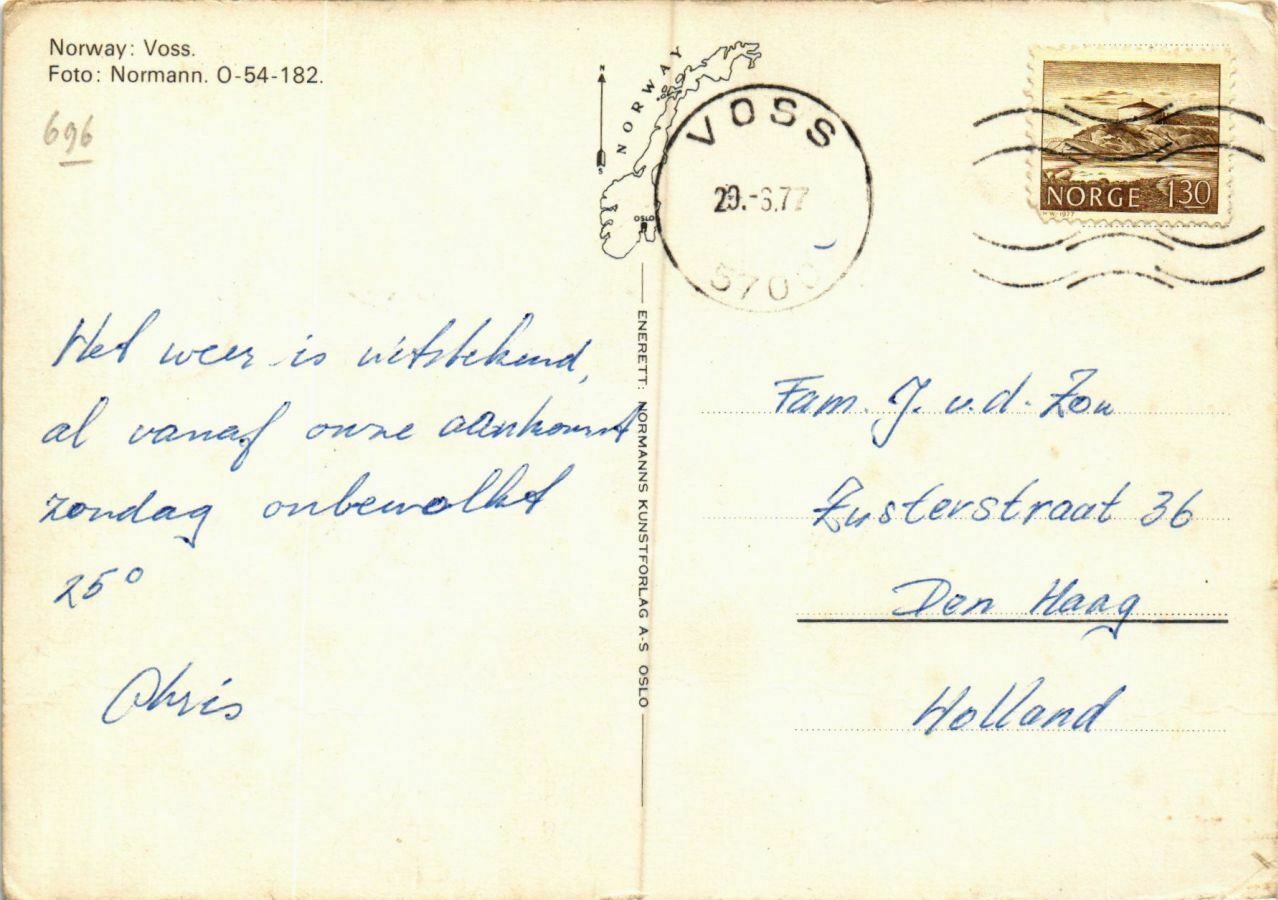 Norway: Voss.
Foto: Normann. O-54-182.
696
N
NORWAY
S
OSLO
VOSS
20.-6.77
5700
NORGE 130
H.W. 1977
Het weer is uitstekend,
al vanaf onze aankomst
zondag onbewolkt
25°
Chris
ENERETT: NORMANNS KUNSTFORLAG A-S OSLO
Fam. J. v.d. Zon
Zusterstraat 36
Den Haag
Holland